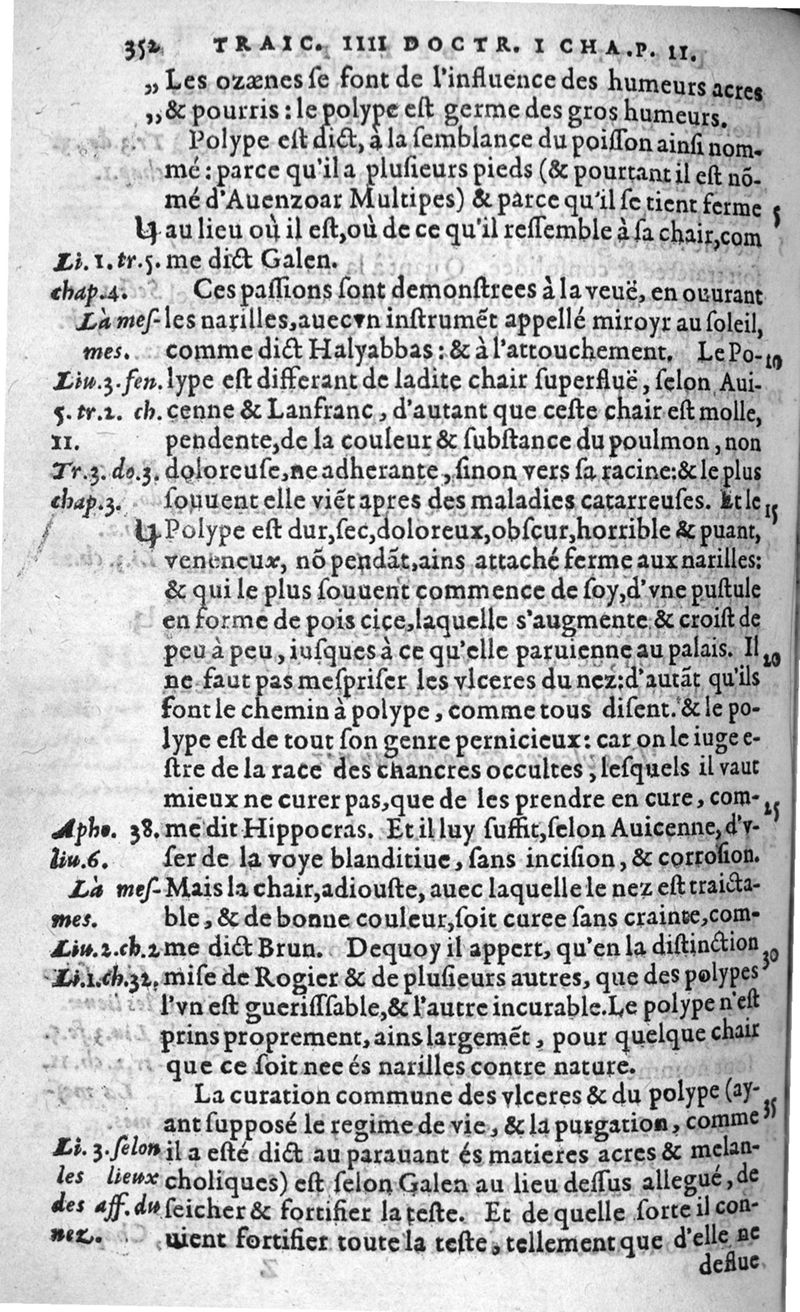 352 TRAIC. IIII DOCTR. I CHA.P. II.
„ Les ozænes ſe font de l'influence des humeurs acres
„ & pourris : le polype eſt germe des gros humeurs.
Polype eſt dict, à la ſemblance du poiſſon ainſi nom-
mé : parce qu'il a pluſieurs pieds (& pourtant il eſt nõ-
mé d'Auenzoar Multipes) & parce qu'il ſe tient ferme 5
au lieu où il eſt, où de ce qu'il reſſemble à ſa chair, com
Li. 1. tr. 5. me dict Galen.
chap. 4. Ces paſſions ſont demonſtrees à la veuë, en ouurant
Là meſ- les narilles, auec vn inſtrumẽt appellé miroyr au ſoleil,
mes. comme dict Halyabbas : & à l'attouchement. Le Po- 10
Liu. 3. fen. lype eſt differant de ladite chair ſuperfluë, ſelon Aui-
5. tr. 2. ch. cenne & Lanfranc, d'autant que ceſte chair eſt molle,
11. pendente, de la couleur & ſubſtance du poulmon, non
Tr. 3. do. 3. doloreuſe, ne adherante, ſinon vers ſa racine: & le plus
chap. 3. ſouuent elle viẽt apres des maladies catarreuſes. Et le 15
Polype eſt dur, ſec, doloreux, obſcur, horrible & puant,
veneneux, nõ pendãt, ains attaché ferme aux narilles:
& qui le plus ſouuent commence de ſoy, d'vne puſtule
en forme de pois cice, laquelle s'augmente & croiſt de
peu à peu, iuſques à ce qu'elle paruienne au palais. Il 20
ne faut pas meſpriſer les vlceres du nez: d'autãt qu'ils
font le chemin à polype, comme tous diſent. & le po-
lype eſt de tout ſon genre pernicieux : car on le iuge e-
ſtre de la race des chancres occultes ; leſquels il vaut
mieux ne curer pas, que de les prendre en cure, com- 25
Apho. 38. me dit Hippocras. Et il luy ſuffit, ſelon Auicenne, d'v-
liu. 6. ſer de la voye blanditiue, ſans inciſion, & corroſion.
Là meſ- Mais la chair, adiouſte, auec laquelle le nez eſt traicta-
mes. ble, & de bonne couleur, ſoit curee ſans crainte, com-
Liu. 2. ch. 2 me dict Brun. Dequoy il appert, qu'en la diſtinction 30
Li. 1. ch. 32. miſe de Rogier & de pluſieurs autres, que des polypes
l'vn eſt gueriſſſable, & l'autre incurable. Le polype n'eſt
prins proprement, ains largemẽt, pour quelque chair
que ce ſoit nee és narilles contre nature.
La curation commune des vlceres & du polype (ay- 35
ant ſuppoſé le regime de vie, & la purgation, comme
Li. 3. ſelon il a eſté dict au parauant és matieres acres & melan-
les lieux choliques) eſt ſelon Galen au lieu deſſus allegué, de
des aff. du ſeicher & fortifier la teſte. Et de quelle ſorte il con-
nez. uient fortifier toute la teſte, tellement que d'elle ne
deflue